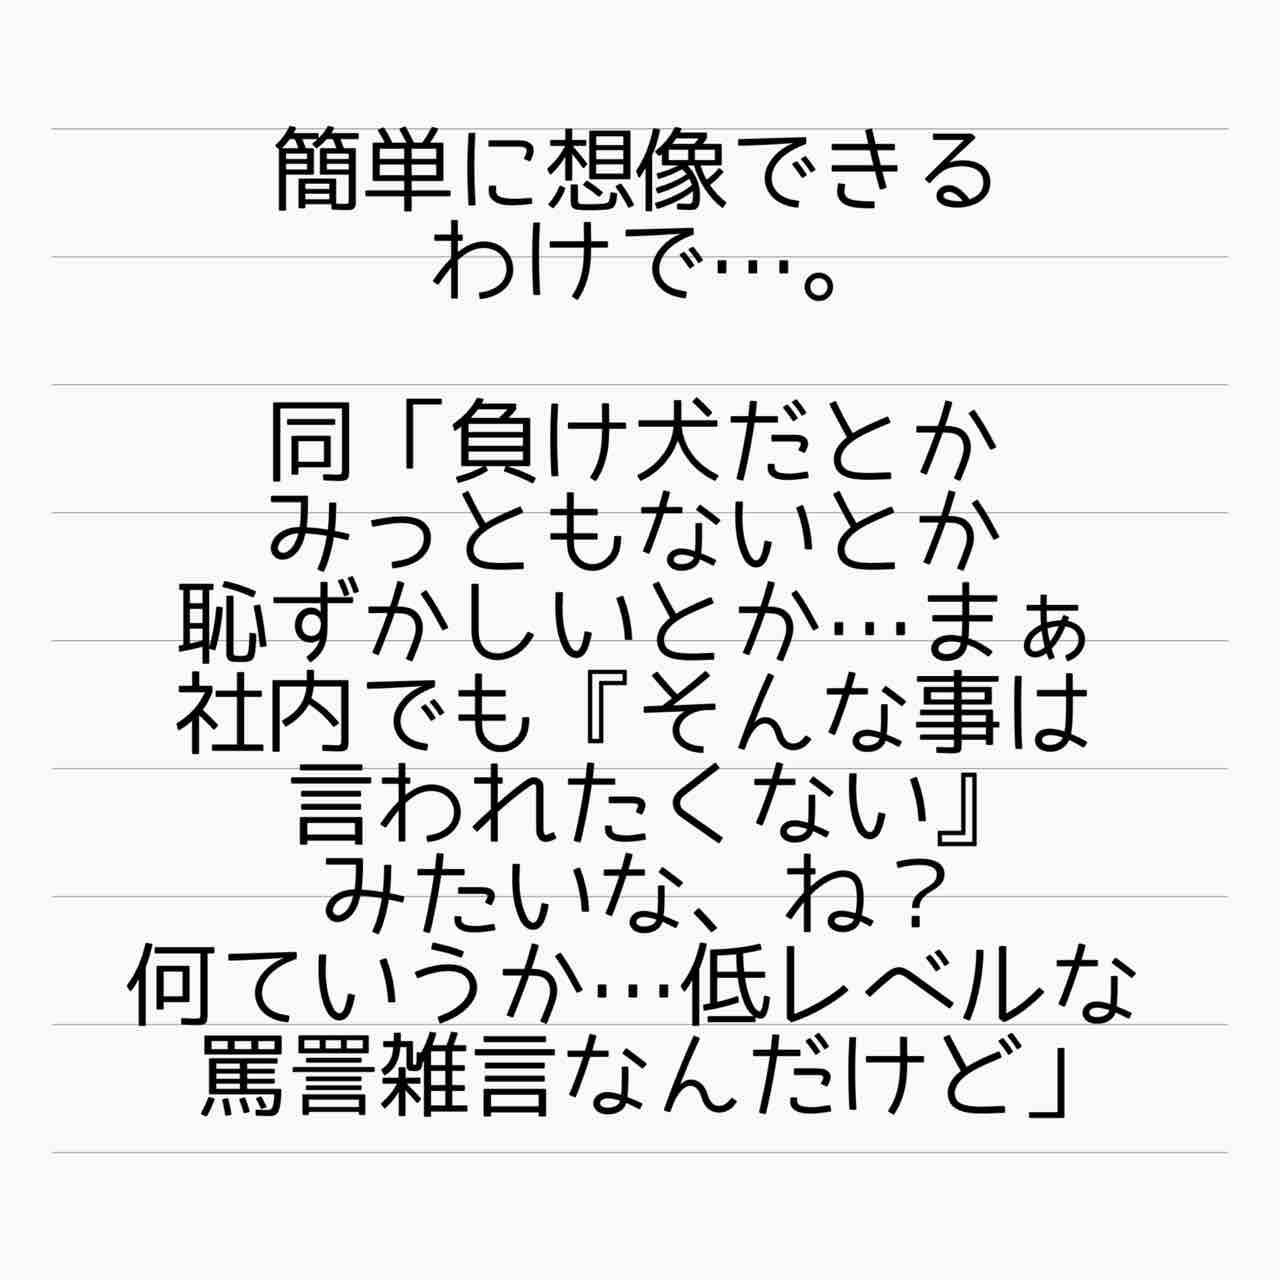 簡単に想像できる
わけで…。
同「負け犬だとか
みっともないとか
恥ずかしいとか…まぁ
社内でも『そんな事は
言われたくない』
みたいな、ね？
何ていうか…低レベルな
罵詈雑言なんだけど」